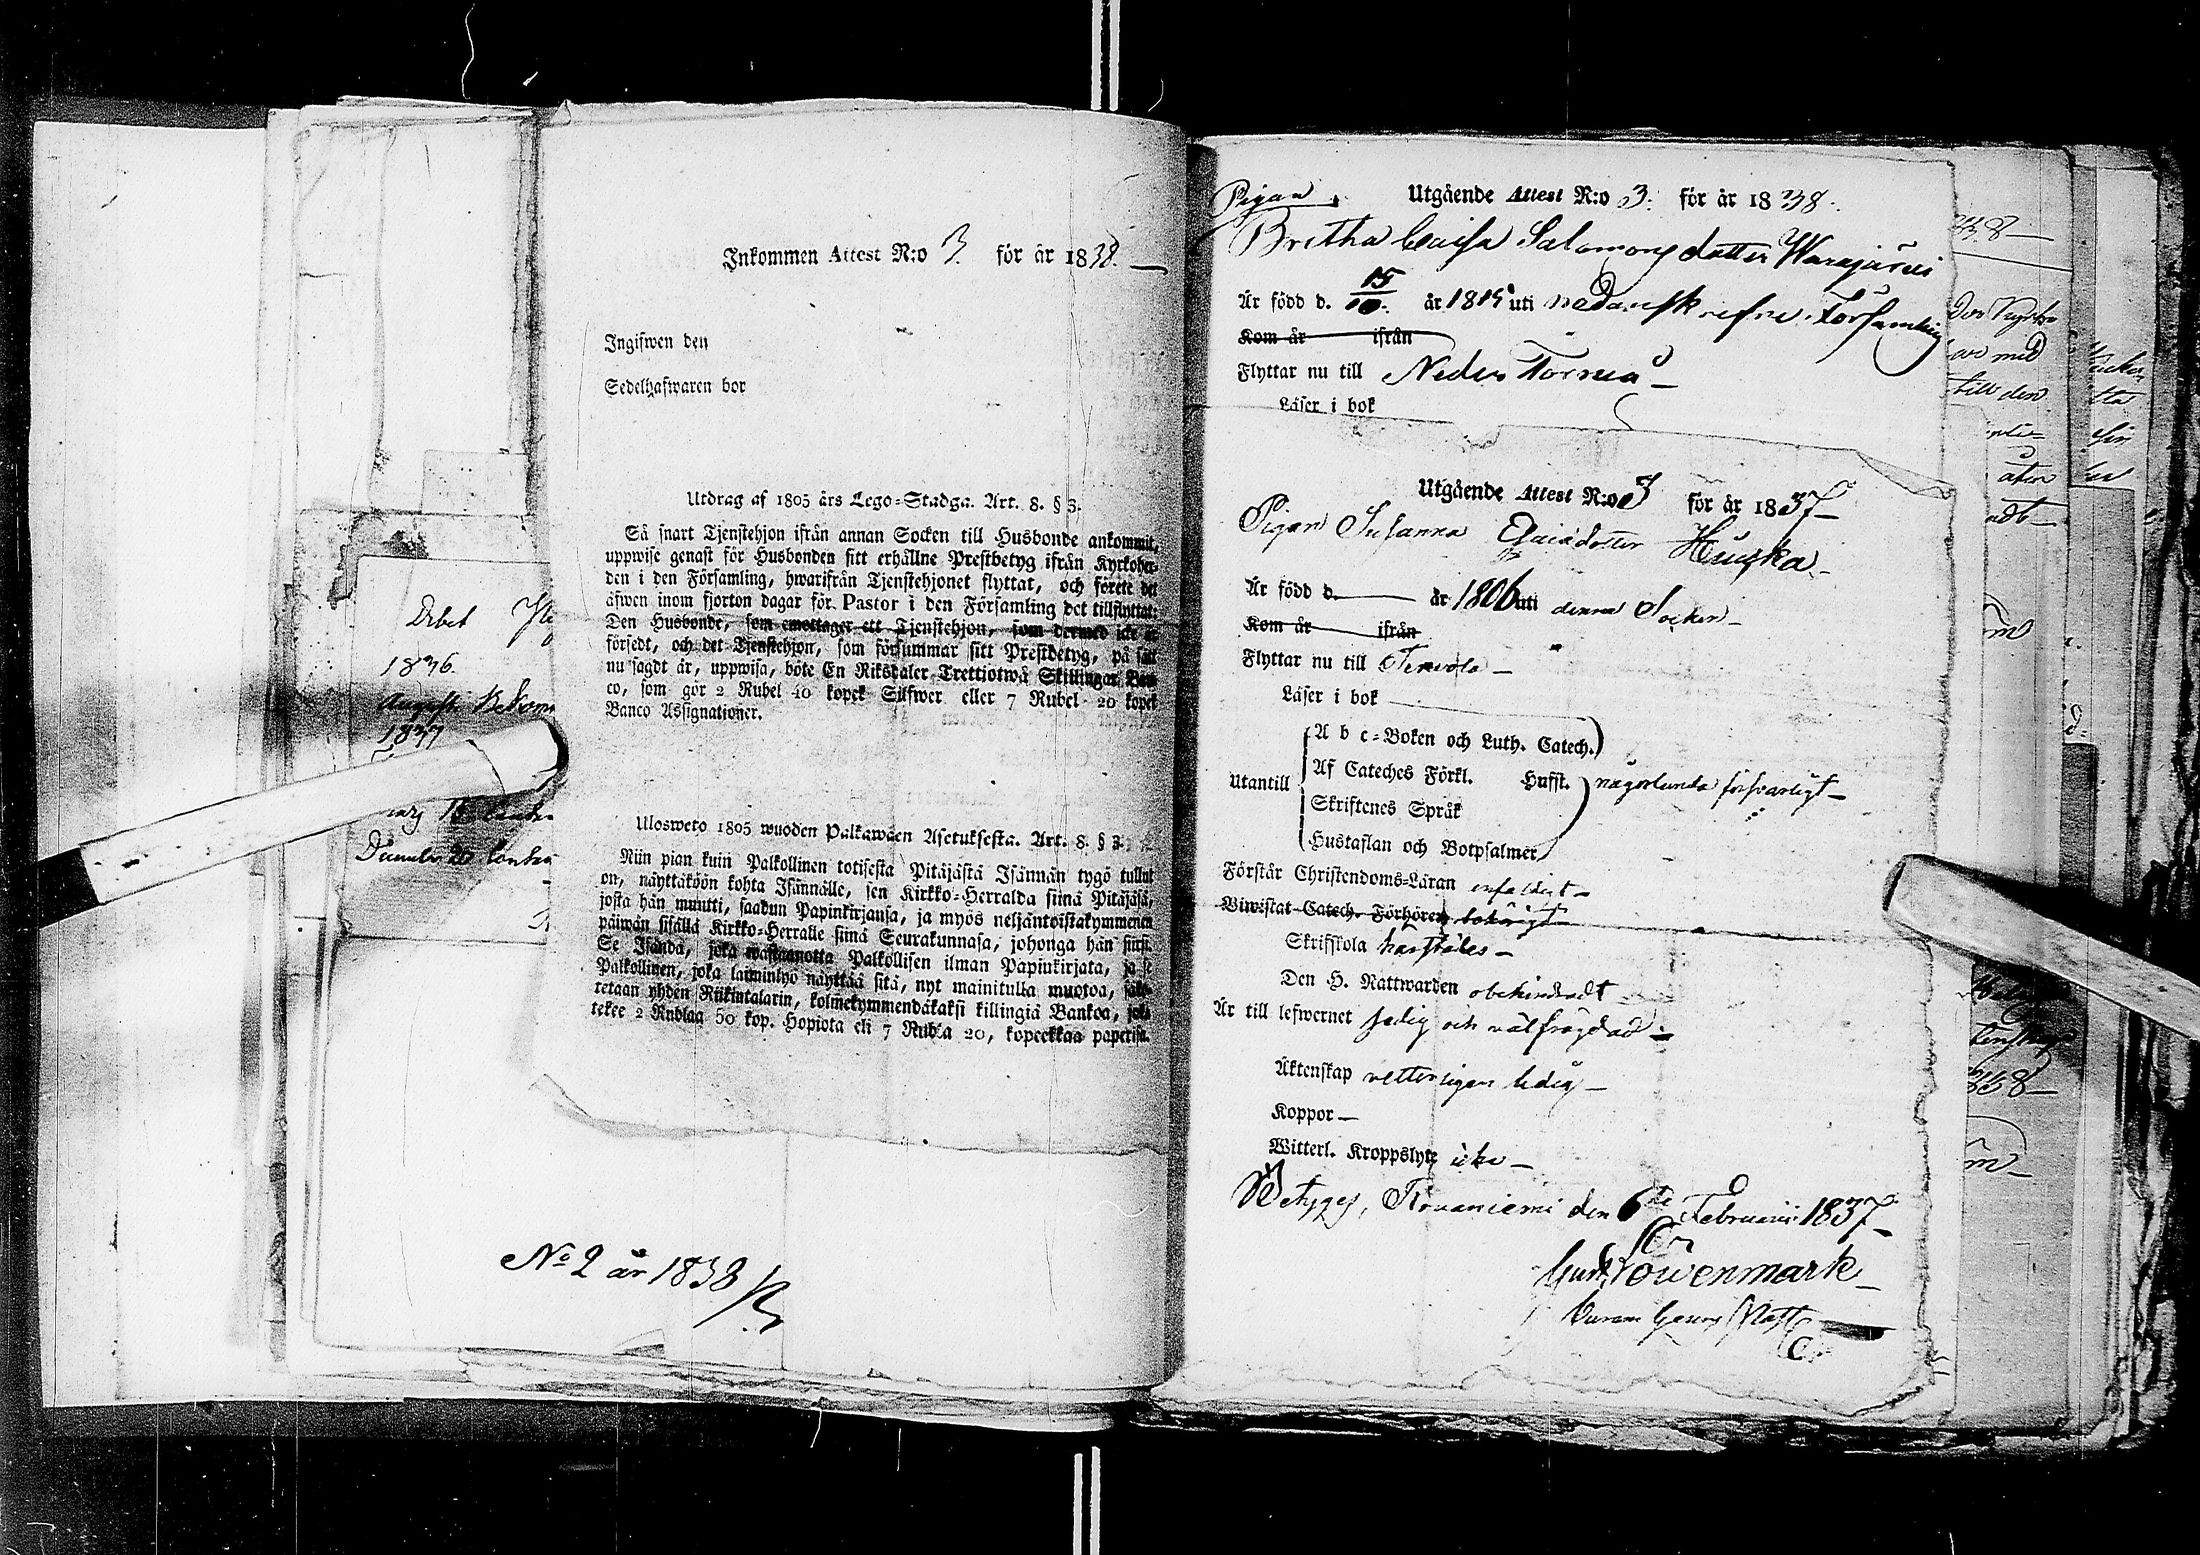 Debet
1836.
Augusti Bekom
1837
Inkommen Attest N:o 3. för år 1838.
Ingifwen den
Sedelhafwaren bor
Utdrag af 1805 års Lego-Stadga. Art. 8. § 3.
Så snart Tjenstehjon ifrån annan Socken till Husbonde ankommit,
uppwise genast för Husbonden sitt erhållne Prestbetyg ifrån Kyrkoher-
den i den Församling, hwarifrån Tjenstehjonet flyttat, och förete det
äfwen inom fjorton dagar för Pastor i den Församling det tillflyttat:
Den Husbonde, som emottager ett Tjenstehjon, som dermed icke är
försedt, och det Tjenstehjon, som försummar sitt Prestbetyg, på sätt
nu sagdt är, uppwisa, böte En Riksdaler Trettiotwå Skillingar Ban-
co, som gör 2 Rubel 40 kopek Silfwer eller 7 Rubel 20 kopek
Banco Assignationer.
Ulosweto 1805 wuoden Palkawäen Asetuksesta. Art. 8. § 3.
Niin pian kuin Palkollinen toisesta Pitäjästä Isännän tygö tullut
on, näyttäköön kohta Isännälle, sen Kirkko-Herralda siinä Pitäjäsä,
josta hän muutti, saadun Papinkirjansa, ja myös neljäntoistakymmenen
päiwän sisällä Kirkko-Herralle siinä Seurakunnasa, johonga hän siirsi.
Se Isändä, joka wastaanotta Palkollisen ilman Papinkirjata, ja se
Palkollinen, joka laiminlyö näyttää sitä, nyt mainitulla muotoa, sako-
tetaan yhden Riikintalarin, kolmekymmendäkaksi killingiä Bankoa, joka
tekee 2 Rublaa 50 kop. Hopiota eli 7 Rubla 20, kopeekkaa paperisa.
No 2 år 1838
Pigan Utgående Attest N:o 3. för år 1838.
Britha Caisa Salomonsdotter Warajärvi
Är född d. 15/10. år 1815 uti nedanskrefne Församling
Kom år ifrån
Flyttar nu till Neder Torneå
Läser i bok
Utgående Attest N:o 3 för år 1837
Pigan Susanna Esaiædotter Huuska
Är född d. år 1806 uti denna Socken
Kom år ifrån
Flyttar nu till Tervola
Läser i bok
A b c-Boken och Luth. Catech.
Utantill Af Cateches Förkl. Hufst. någorlunda försvarligt
Skriftenes Språk
Hustaflan och Botpsalmer
Förstår Christendoms-Läran enfaldigt
Biwistat Catech. Förhören behörigt
Skrifskola
Den H. Nattwarden obehindradt
Är till lefwernet sedig och välfrägdad
Äktenskap vetterligen ledig
Koppor
Witterl. Kroppslyte icke
Betyges, Rovaniemi den 6te Februarii 1837
Gust. Löwenmark